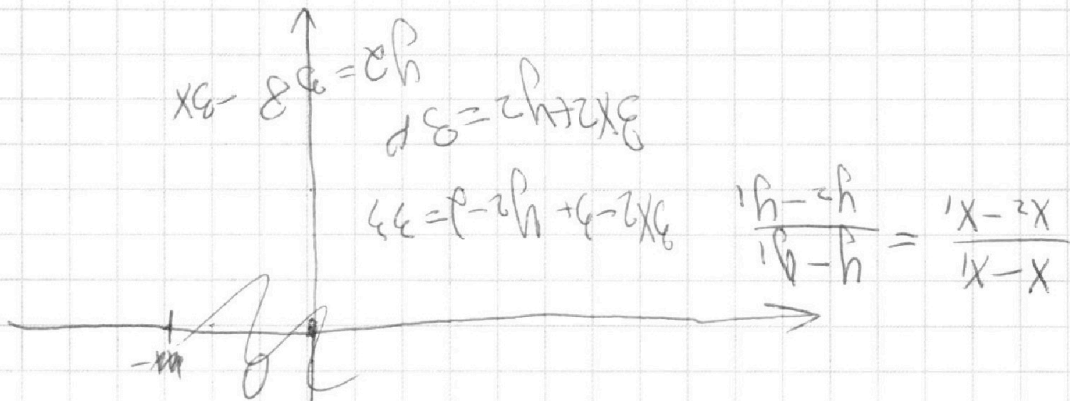 x-x₁/x₂-x₁ = y-y₁/y₂-y₁
3x₂-3+y₂-2=33
3x₂+y₂=38
y₂=38-3x